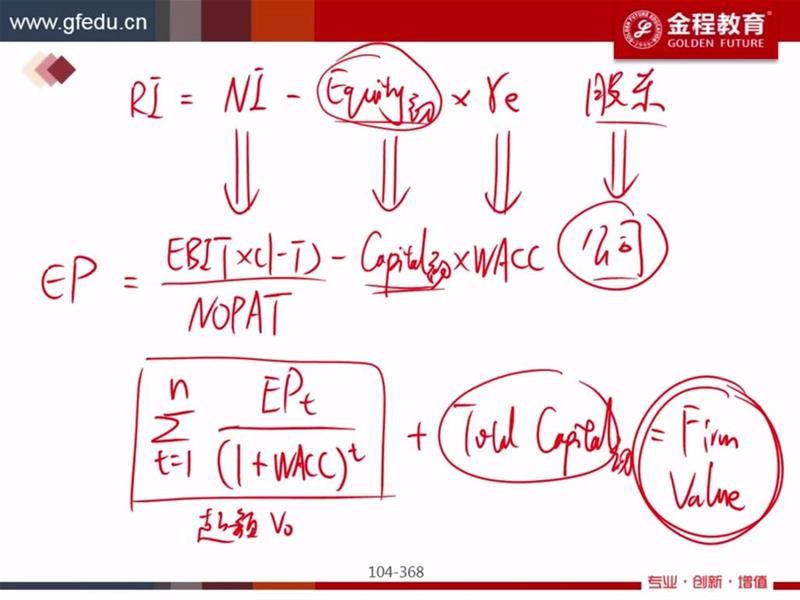 www.gfedu.cn
金程教育
GOLDEN FUTURE
RI = NI - Equity初 × re 股东
EP = EBIT×(1-T) - Capital初 × WACC 公司
NOPAT
n EPt
∑ ───── + Total Capital初 = Firm Value
t=1 (1+WACC)^t
超额 V0
104-368
专业·创新·增值